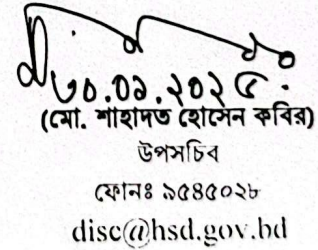 ৩০.০১.২০২৫
(মো. শাহাদত হোসেন কবির)
উপসচিব
ফোনঃ ৯৫৪৫০২৮
disc@hsd.gov.bd